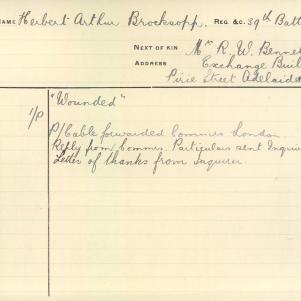 NAME Herbert Arthur Brocksopp. REG. &C. 39th Batt
NEXT OF KIN Mr R. W. Bennet
ADDRESS Exchange Buil
Pirie Street Adelaide
"Wounded"
1/P
P/Cable forwarded Commrs London.
Reply from Commrs. Particulars sent Inquir
Letter of thanks from Inquirer.